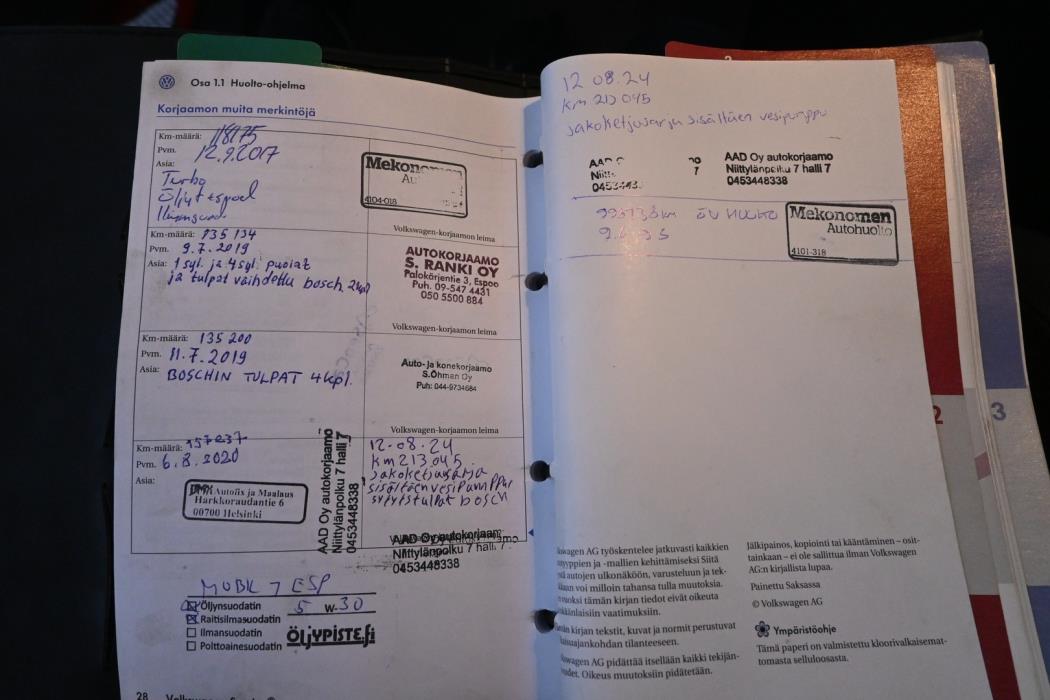 Osa 1.1 Huolto-ohjelma
Korjaamon muita merkintöjä
Km-määrä: 118175
Pvm. 12.9.2017
Asia:
Turbo
Öljyt
Mekonomen
4104-018
Volkswagen-korjaamon leima
Km-määrä: 135 134
Pvm. 9.7.2019
Asia: 1 syl. ja 4 syl. puolat
ja tulpat vaihdettu bosch. 2kpl
AUTOKORJAAMO
S. RANKI OY
Palokärjentie 3, Espoo
Puh. 09-547 4431
050 5500 884
Volkswagen-korjaamon leima
Km-määrä: 135 200
Pvm. 11.7.2019
Asia: BOSCHIN TULPAT 4kpl.
Auto-ja konekorjaamo
S.Öhman Oy
Puh: 044-9734684
Volkswagen-korjaamon leima
Km-määrä: 157237
Pvm. 6.8.2020
Asia:
DMK Autofix ja Maalaus
Harkkoraudantie 6
00700 Helsinki
AAD Oy autokorjaamo
Niittylänpolku 7 halli 7
0453448338
12.08.24
km 213045
jakoketjusarja
sisältäen vesipumppu
sytytstulpat bosch
AAD Oy autokorjaamo
Niittylänpolku 7 halli 7
0453448338
MOBIL 1 ESP
Öljynsuodatin 5 W-30
Raitisilmasuodatin
Ilmansuodatin
Polttoainesuodatin
ÖLJYPISTE.fi
28
12 08.24
km 213 045
jakoketjusarja sisältäen vesipumppu
AAD Oy autokorjaamo
Niittylänpolku 7 halli 7
0453448338
Mekonomen
Autohuolto
4101-318
2
3
wagen AG työskentelee jatkuvasti kaikkien
tyyppien ja -mallien kehittämiseksi Siitä
autojen ulkonäköön, varusteluun ja tek-
voi milloin tahansa tulla muutoksia.
vuoksi tämän kirjan tiedot eivät oikeuta
vaatimuksiin.
kirjan tekstit, kuvat ja normit perustuvat
tilanteeseen.
wagen AG pidättää itsellään kaikki tekijän-
Oikeus muutoksiin pidätetään.
Jälkipainos, kopiointi tai kääntäminen – osit-
tainkaan – ei ole sallittua ilman Volkswagen
AG:n kirjallista lupaa.
Painettu Saksassa
© Volkswagen AG
Ympäristöohje
Tämä paperi on valmistettu kloorivalkaisemat-
tomasta selluloosasta.